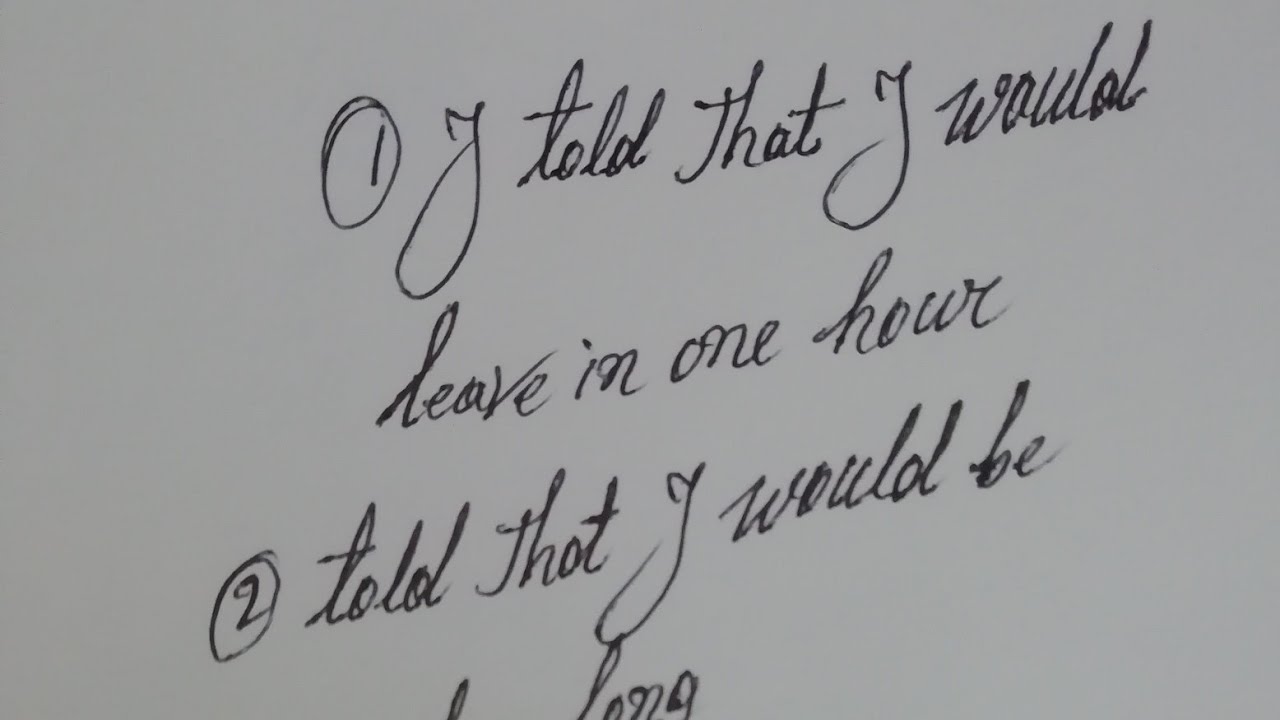 ① I told that I would
leave in one hour
② told that I would be
long